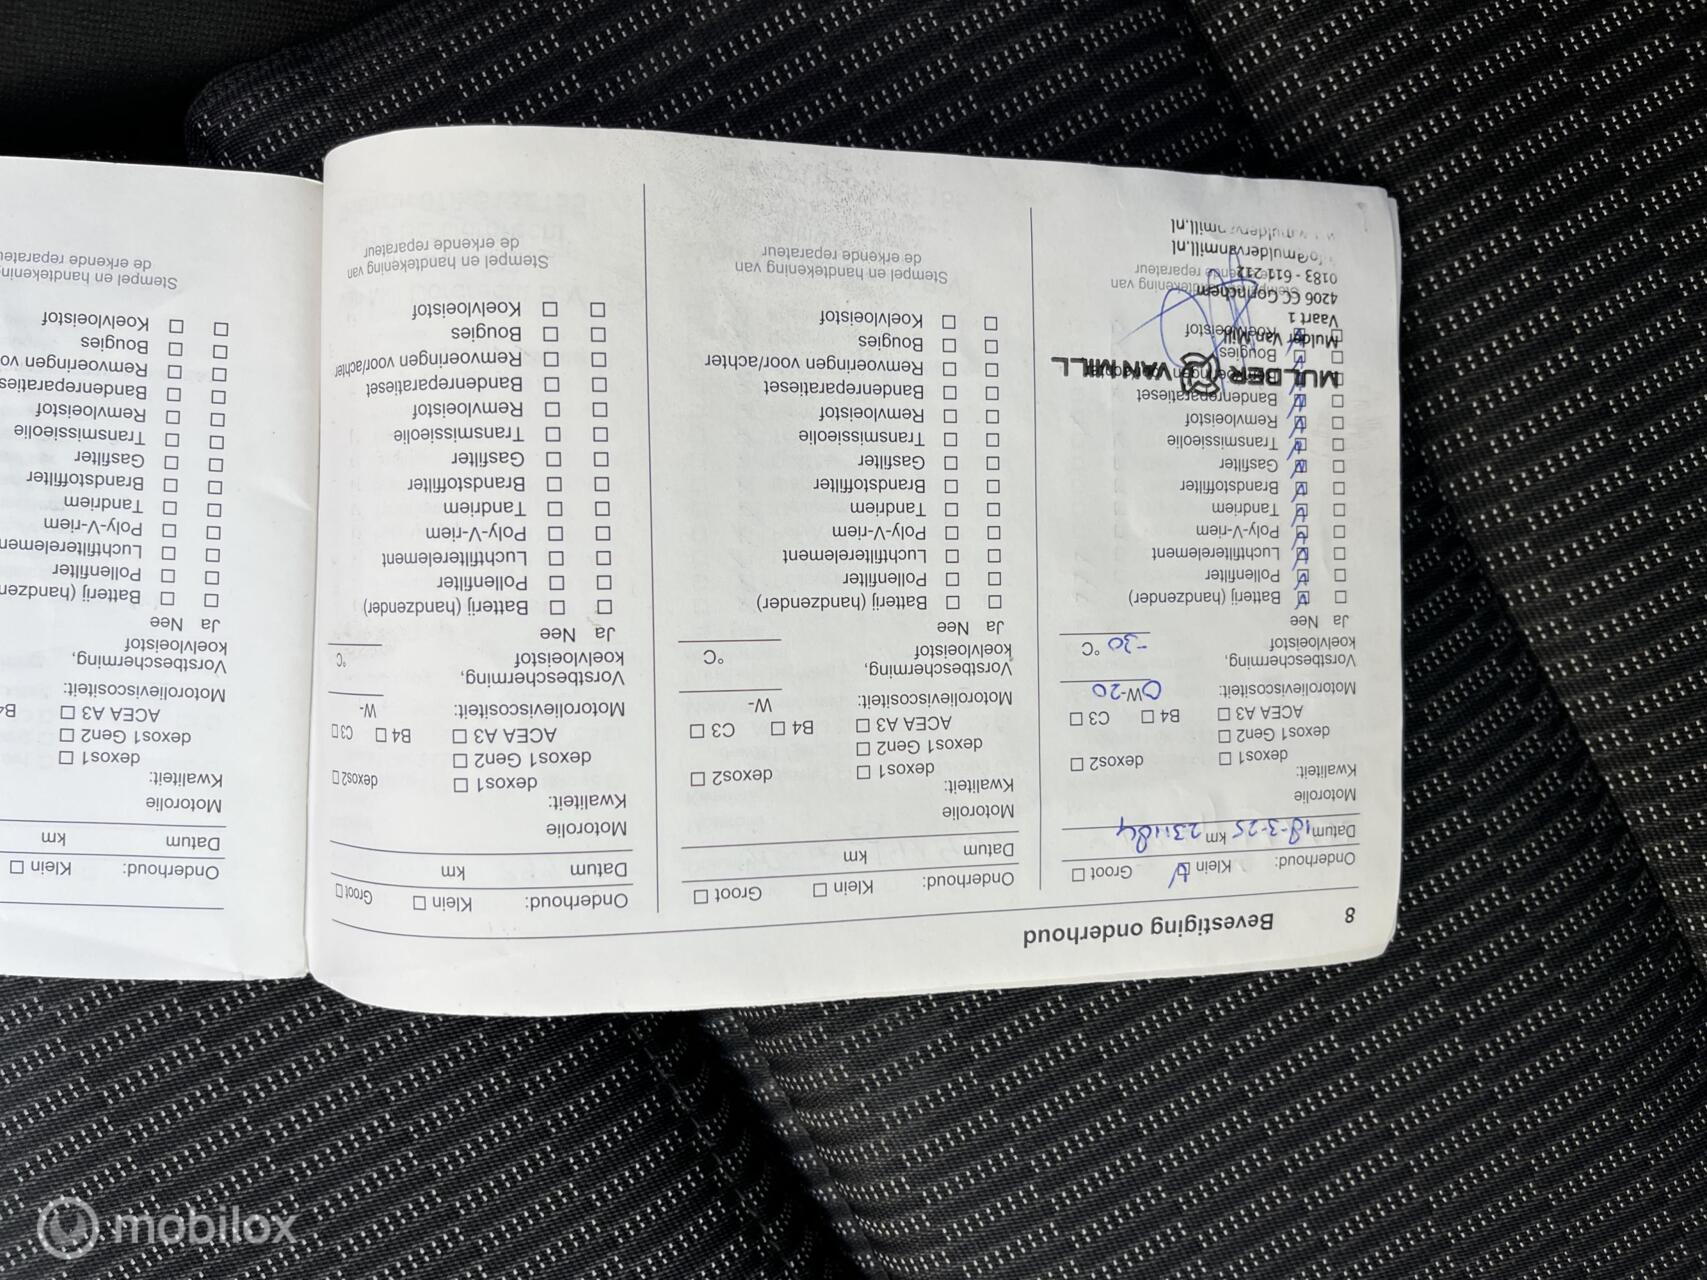 8 Bevestiging onderhoud
Onderhoud: Klein Groot
Datum 18-3-25 km 231184
Motorolie
Kwaliteit:
dexos1 dexos2
dexos1 Gen2
ACEA A3 B4 C3
Motorolieviscositeit: 0W-20
Vorstbescherming,
koelvloeistof -30 °C
Ja Nee
Batterij (handzender)
Pollenfilter
Luchtfilterelement
Poly-V-riem
Tandriem
Brandstoffilter
Gasfilter
Transmissieolie
Remvloeistof
Bandenreparatieset
Bougies
Koelvloeistof
MULDER VAN MILL
Mulder Van Mill
Vaart 1
4206 CC Gorinchem
0183 - 611 212
info@muldervanmill.nl
Onderhoud: Klein Groot
Datum km
Motorolie
Kwaliteit:
dexos1 dexos2
dexos1 Gen2
ACEA A3 B4 C3
Motorolieviscositeit: W-
Vorstbescherming,
koelvloeistof °C
Ja Nee
Batterij (handzender)
Pollenfilter
Luchtfilterelement
Poly-V-riem
Tandriem
Brandstoffilter
Gasfilter
Transmissieolie
Remvloeistof
Bandenreparatieset
Remvoeringen voor/achter
Bougies
Koelvloeistof
Stempel en handtekening van
de erkende reparateur
Onderhoud: Klein Groot
Datum km
Motorolie
Kwaliteit:
dexos1 dexos2
dexos1 Gen2
ACEA A3 B4 C3
Motorolieviscositeit: W-
Vorstbescherming,
koelvloeistof °C
Ja Nee
Batterij (handzender)
Pollenfilter
Luchtfilterelement
Poly-V-riem
Tandriem
Brandstoffilter
Gasfilter
Transmissieolie
Remvloeistof
Bandenreparatieset
Remvoeringen voor/achter
Bougies
Koelvloeistof
Stempel en handtekening van
de erkende reparateur
Onderhoud: Klein
Datum km
Motorolie
Kwaliteit:
dexos1
dexos1 Gen2
ACEA A3 B4
Motorolieviscositeit:
Vorstbescherming,
koelvloeistof
Ja Nee
Batterij
Pollenfilter
Luchtfilterelement
Poly-V-riem
Tandriem
Brandstoffilter
Gasfilter
Transmissieolie
Remvloeistof
Bandenreparaties
Remvoeringen vo
Bougies
Koelvloeistof
Stempel en handtekening
de erkende reparateu
mobilox